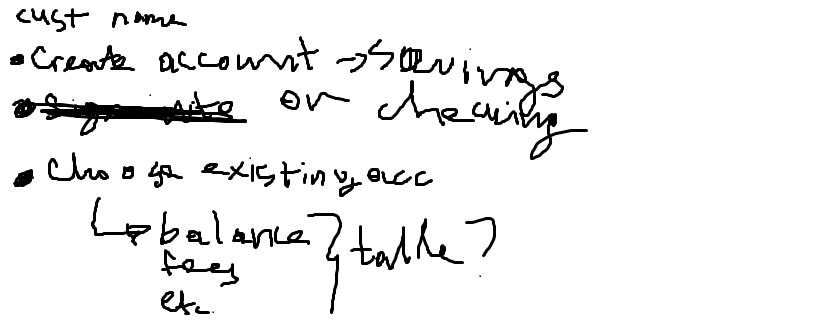 cust name
• Create account → savings
or checking
• Choose existing acc
↳ balance } table?
fees
etc.